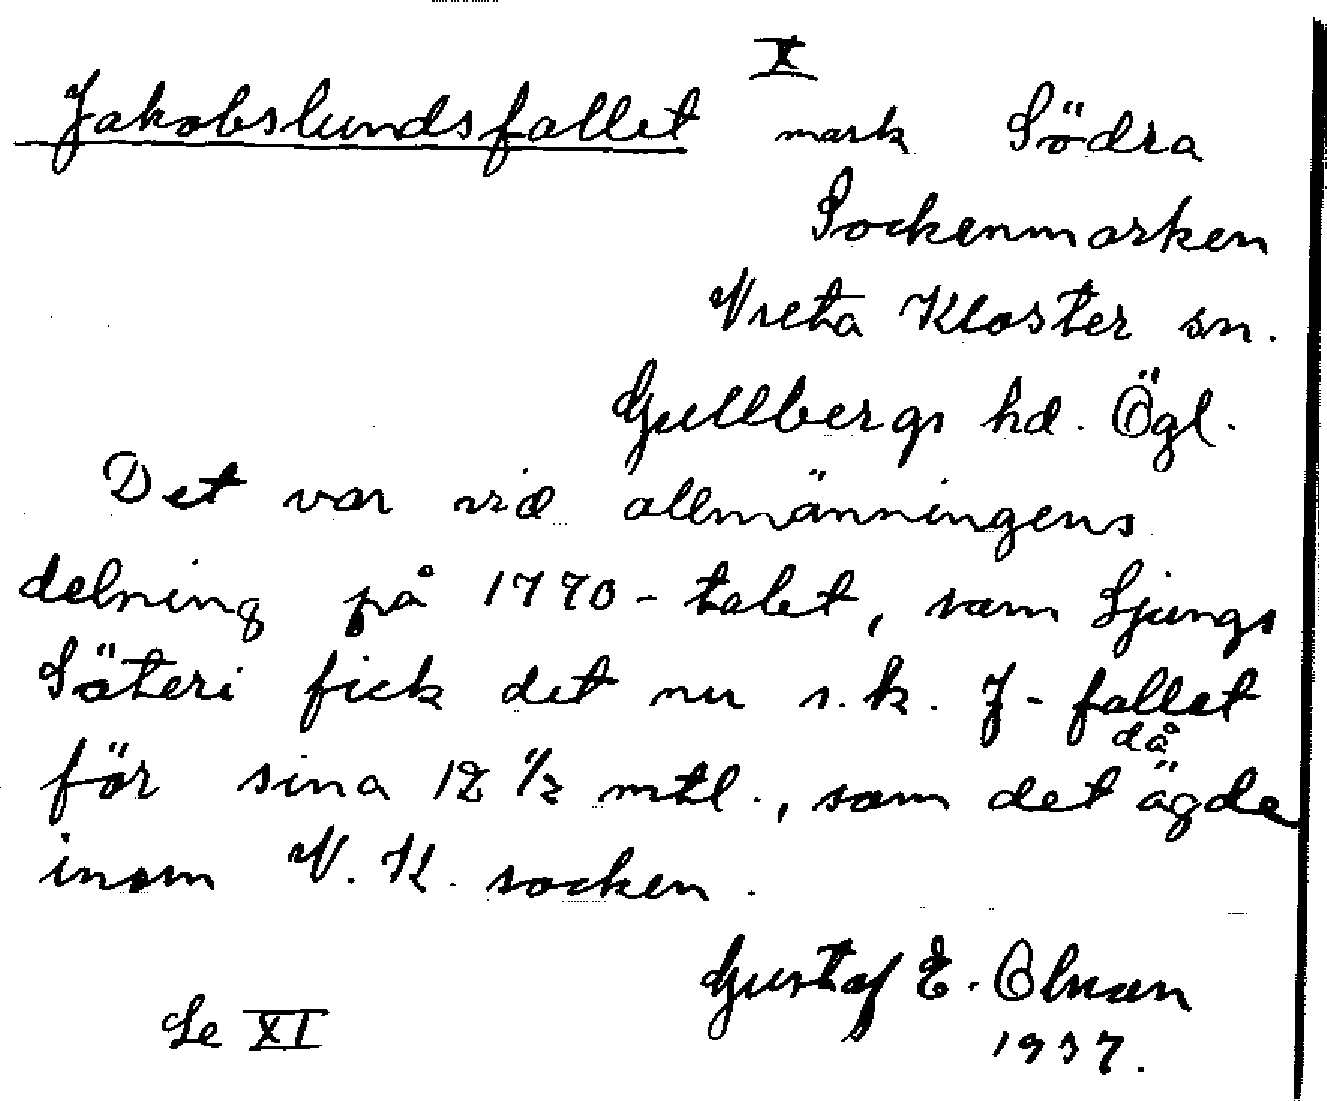 X
Jakobslundsfallet mark Södra
Sockenmarken
Vreta Kloster sn.
Gullbergs hd. Ögl.
Det var vid allmänningens
delning på 1770-talet, som Ljungs
Säteri fick det nu s.k. J-fallet
då
för sina 12 1/2 mtl., som det ägde
inom V.K. socken.
Gustaf E.
Se XI
1937.